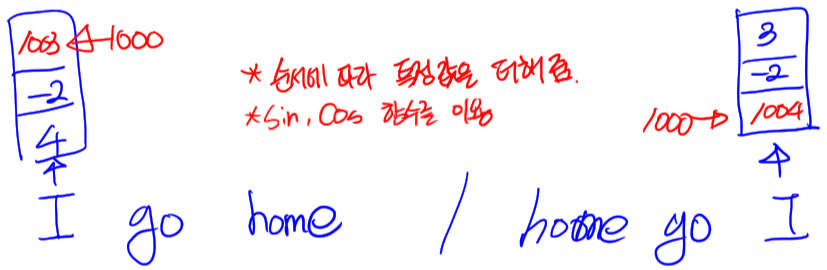 1003 ← 1000
-2
4
* 순서에 따라 특정값을 더해줌.
* Sin, Cos 함수를 이용
3
-2
1000 → 1004
I go home / home go I